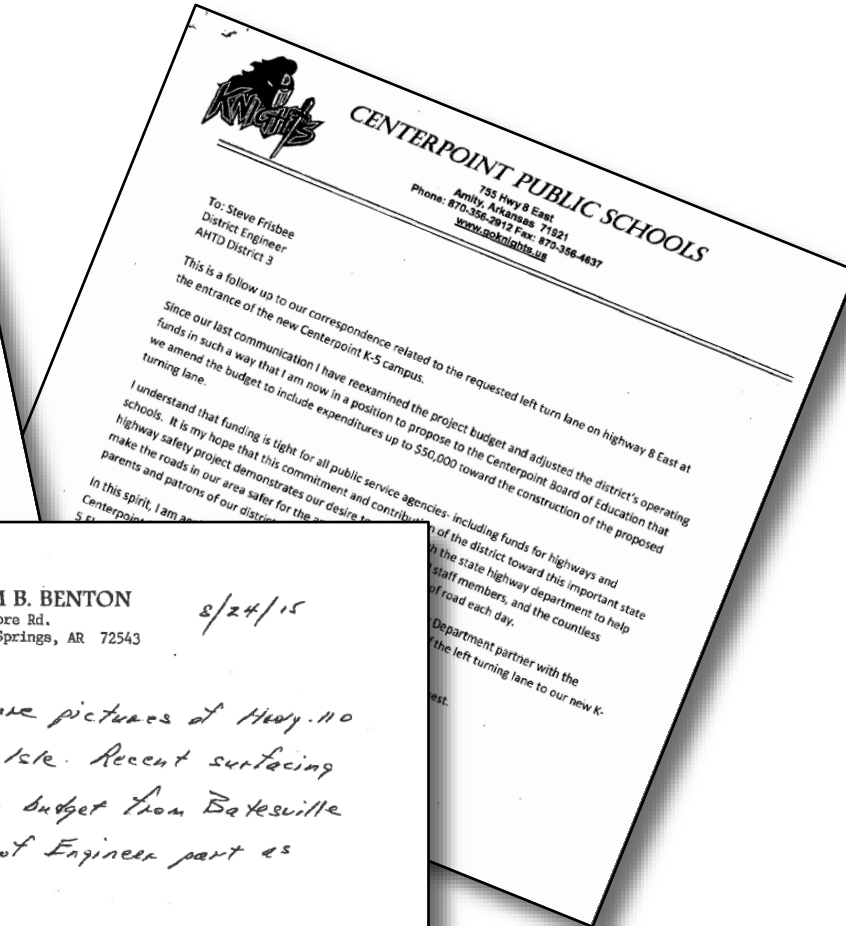 KNIGHTS
CENTERPOINT PUBLIC SCHOOLS
755 Hwy 8 East
Amity, Arkansas 71921
Phone: 870-356-2912 Fax: 870-356-4637
www.goknights.us
To: Steve Frisbee
District Engineer
AHTD District 3
This is a follow up to our correspondence related to the requested left turn lane on highway 8 East at
the entrance of the new Centerpoint K-5 campus.
Since our last communication I have reexamined the project budget and adjusted the district's operating
funds in such a way that I am now in a position to propose to the Centerpoint Board of Education that
we amend the budget to include expenditures up to $50,000 toward the construction of the proposed
turning lane.
I understand that funding is tight for all public service agencies- including funds for highways and
schools. It is my hope that this commitment and contribution of the district toward this important state
highway safety project demonstrates our desire to the state highway department to help
make the roads in our area safer for the staff members, and the countless
parents and patrons of our district of road each day.
In this spirit, I am Department partner with the
Centerpoint of the left turning lane to our new K-
5
B. BENTON
Rd.
Springs, AR 72543
8/24/15
pictures of Hwy. 110
Isle. Recent surfacing
budget from Batesville
of Engineer part as